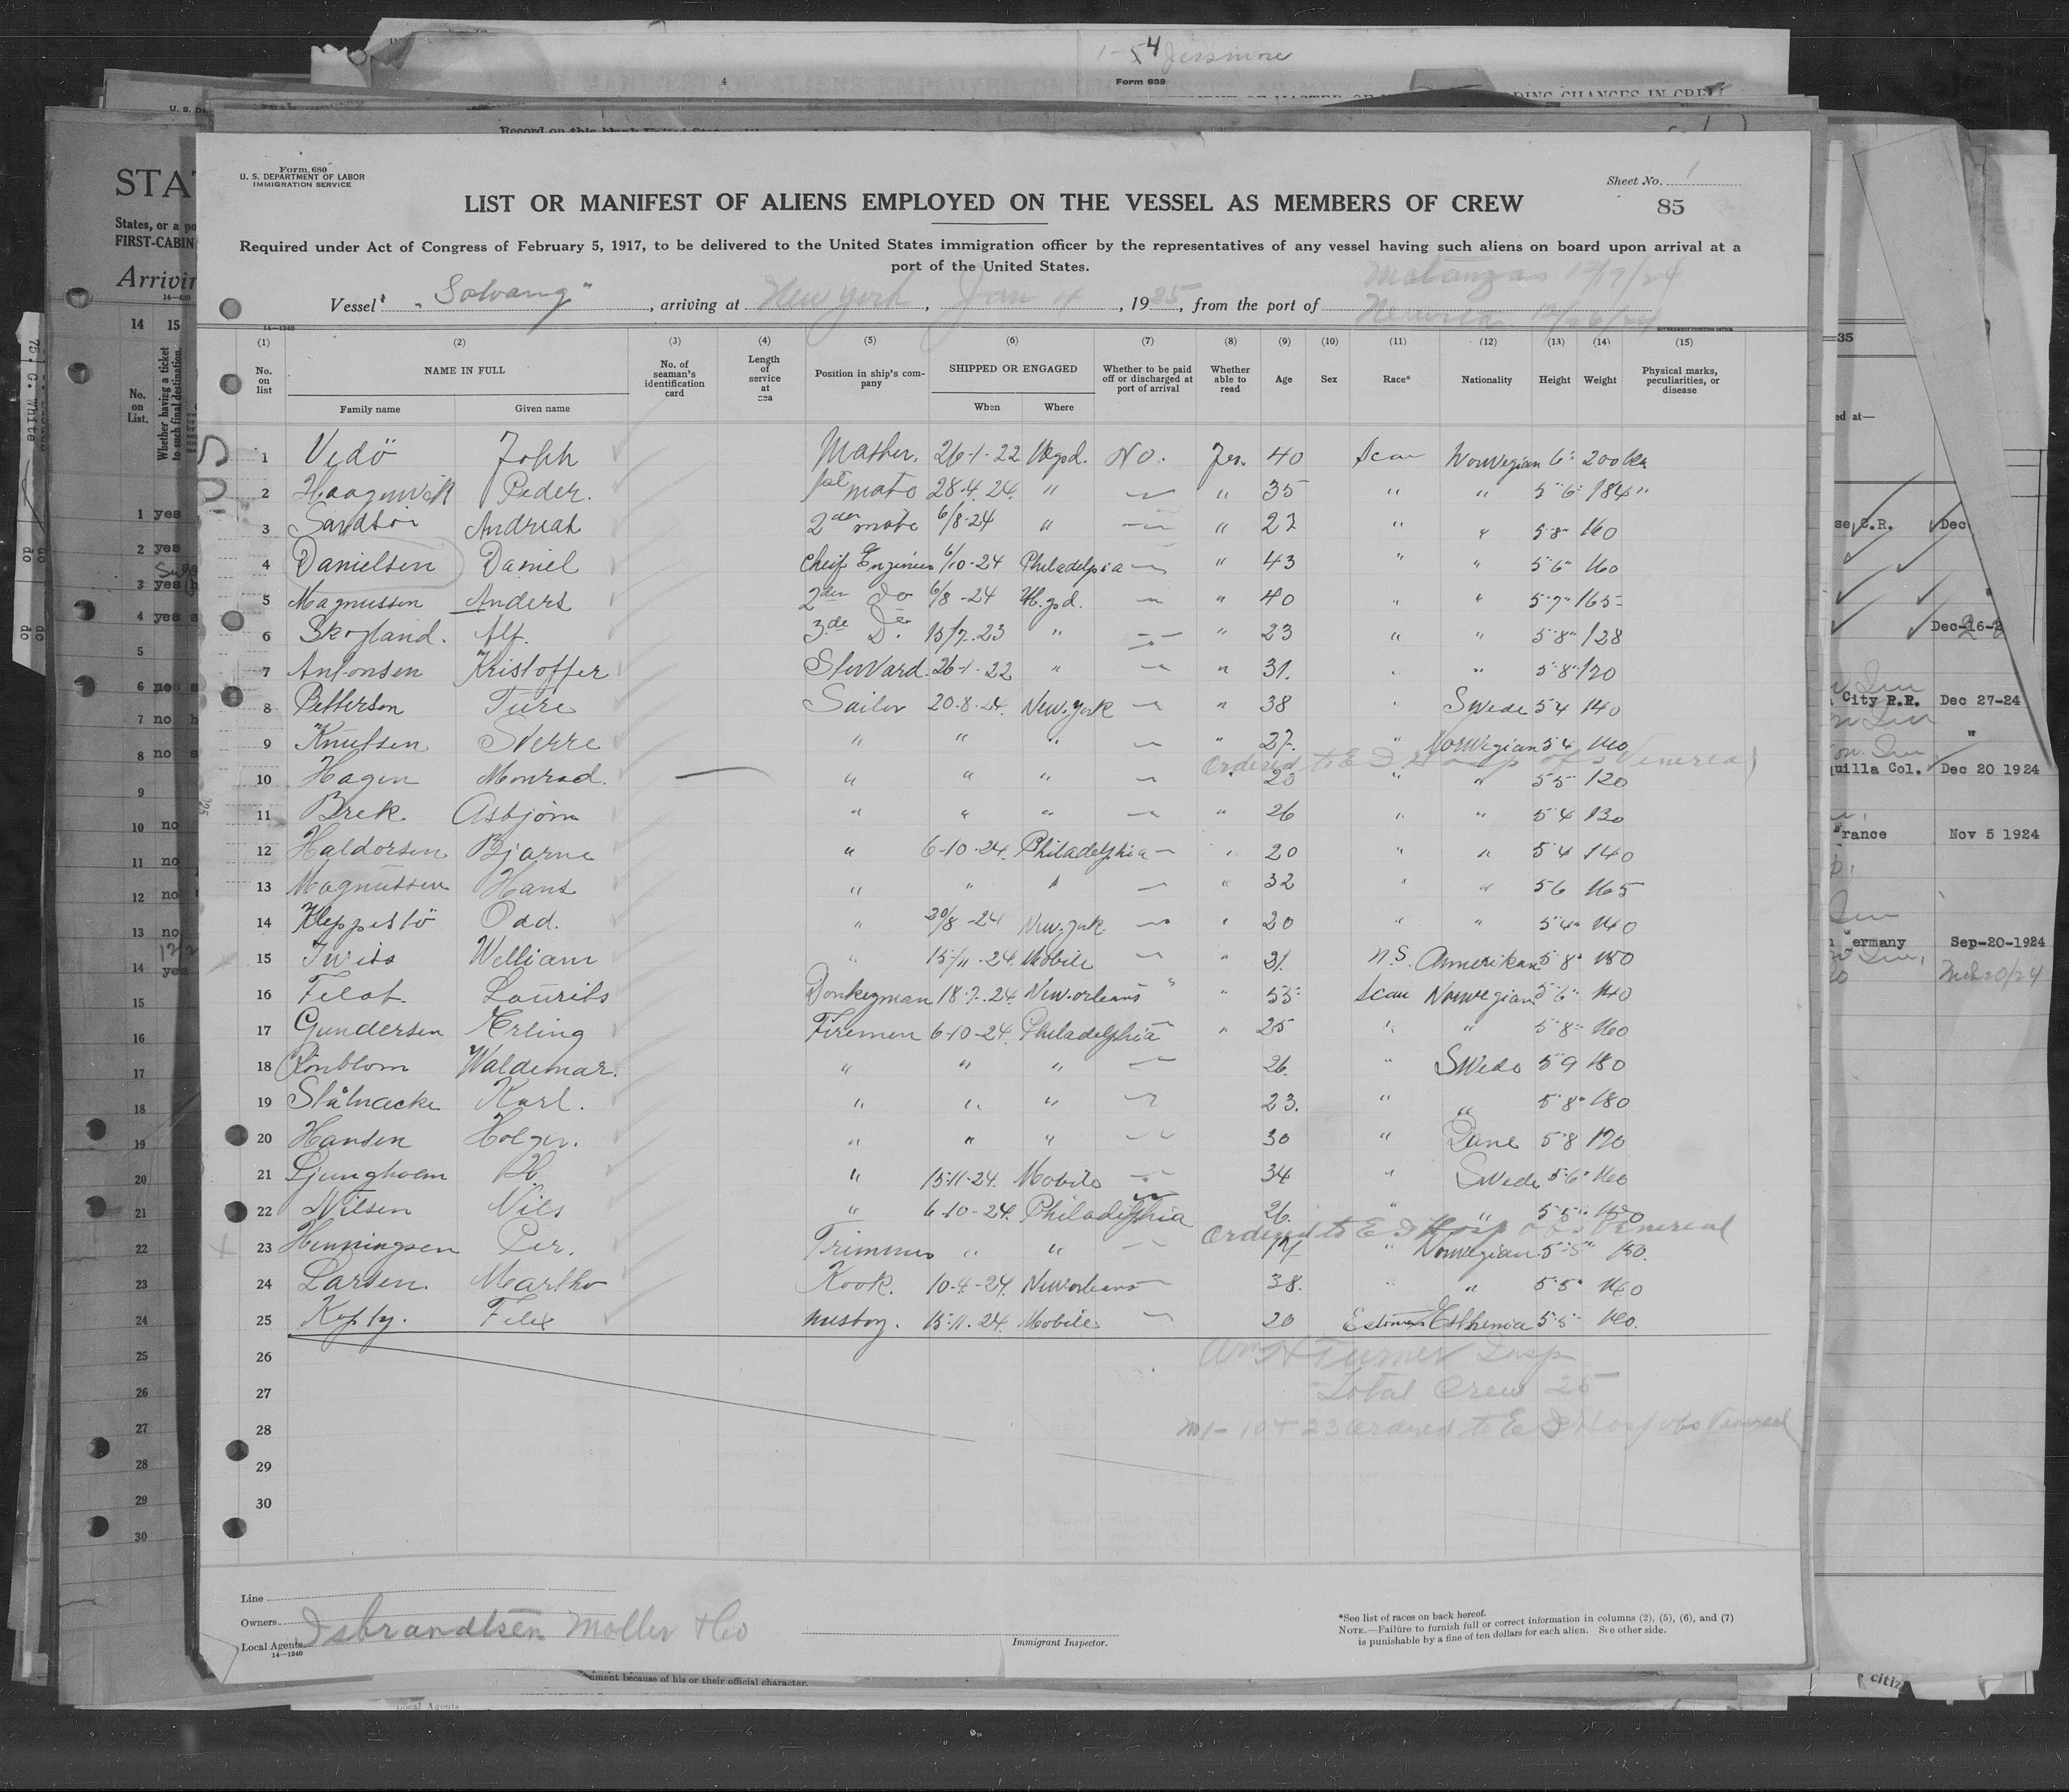 1-54 Jessmore
4
Form 689
DING CHANGES IN CREW
Record on this blank United States
Form 680
U. S. DEPARTMENT OF LABOR
IMMIGRATION SERVICE
Sheet No. 1
LIST OR MANIFEST OF ALIENS EMPLOYED ON THE VESSEL AS MEMBERS OF CREW
85
Required under Act of Congress of February 5, 1917, to be delivered to the United States immigration officer by the representatives of any vessel having such aliens on board upon arrival at a
port of the United States.
Matanzas 12/17/24
Vessel "Solvang", arriving at New York, Jan 4, 1925, from the port of 12/26/24
14—1240
(1) (2) (3) (4) (5) (6) (7) (8) (9) (10) (11) (12) (13) (14) (15)
No. on list NAME IN FULL No. of seaman's identification card Length of service at sea Position in ship's company SHIPPED OR ENGAGED Whether to be paid off or discharged at port of arrival Whether able to read Age Sex Race* Nationality Height Weight Physical marks, peculiarities, or disease
Family name Given name When Where
1 Vedö John Master. 26-1-22 Hgsd. No. Yes. 40 Scan Norwegian 6" 200 lbs
2 Haagenvik Peder. 1st mate 28-4-24. " " 35 " " 5"6" 184"
3 Sandtöi Andreas 2den mate 6/8-24 " " 27 " " 5 8" 160
4 Danielsen Daniel Cheif Enginier 6/10-24 Philadelpia " 43 " " 5"6" 160
5 Magnussen Anders 2den do 6/8-24 H.gsd. " 40 " " 5"7" 165
6 Skogland. Alf. 3de Do. 15/7-23 " " 23 " " 5"8" 128
7 Antonsen Kristoffer Stuvard. 26-1-22 " " 31. " " 5"8" 170
8 Petterson Ture Sailor 20-8-24. New-York " 38 " Swede 5 4 140
9 Knutsen Sverre " " " " 27. " Norwegian 5 4 140
Ordered to E I Hosp obs Venereal
10 Hagen Monrad. " " " " 20 " " 5 5 120
11 Brek. Asbjörn " " " " 26 " " 5 4 130
12 Haldorsen Bjarne " 6-10-24. Philadelphia " 20 " " 5 4 140
13 Magnussen Hans " " " " 32 " " 5 6 165
14 Kleppestö Odd. " 30/8-24 New-york " 20 " " 5"4" 140
15 Twiss Welliam " 15/11-24. Mobile " 31. n.S. Amerikan 5"8" 150
16 Felot. Laurits Donkeyman 18-7-24. New-orleans " 53 Scan Norwegian 5"6" 140
17 Gundersen Erling Firemen 6-10-24. Philadelphia " 25 " " 5"8" 160
18 Rönblom Waldemar. " " " 26. " Swede 5"9 180
19 Stålnacke Karl. " " " 23. " " 5"8" 180
20 Hansen Holger. " " " 30 " Dane 5"8 170
21 Ljungholm H. " 15-11-24. Mobile 34 " Swede 5"6" 160
22 Nilsen Nils " 6-10-24. Philadelphia 26. " " 5"5"
Ordered to E I Hosp obs Venereal
23 Henningsen Per. Trimmer " " " Norwegian 5"5" 150.
24 Larsen. Martho Kook. 10-4-24. Neuorleans 38. " " 5"5" 140
25 Felix messboy. 15-11-24. Mobile 20 Esthenia 5"5" 140.
26
Wm H Turner Insp
27 Total Crew 25
28 no 1-10 + 23 ordered to E I Hosp obs Venereal
29
30
Line
Owners
Local Agents Isbrandtsen Moller & Co
14—1240
Immigrant Inspector.
*See list of races on back hereof.
NOTE.—Failure to furnish full or correct information in columns (2), (5), (6), and (7)
is punishable by a fine of ten dollars for each alien. See other side.
nment because of his or their official character.
Local Agents
STA
States, or a po
FIRST-CABIN
Arrivin
14 15
No. on List.
Whether having a ticket to such final destination.
1 yes
2 yes
3 yes
4 yes
5
6 no
7 no
8 no
9
10 no
11 no
12 no
13 no
14 yes
15
16
17
18
19
20
21
22
23
24
25
26
27
28
29
30
75. C. White
do do
do do
35
ed at—
se, C.R. Dec
Dec-16-2
City R.R. Dec 27-24
"
uilla Col. Dec 20 1924
France Nov 5 1924
ermany Sep-20-1924
citiz